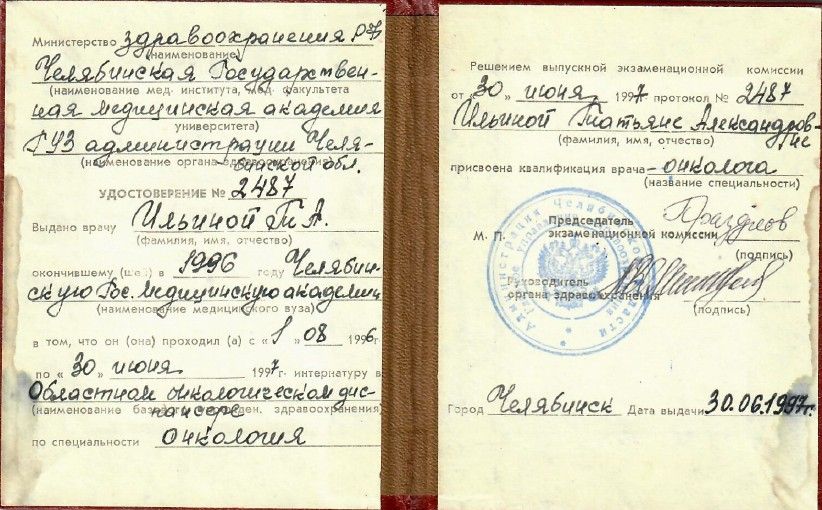 Министерство здравоохранения РФ
(наименование)
Челябинская Государствен-
(наименование мед. института, мед. факультета
ная медицинская академия
университета)
ГУЗ администрации Челя-
(наименование органа здравоохранения)
бинской обл.
УДОСТОВЕРЕНИЕ № 2487
Выдано врачу Ильиной Т.А.
(фамилия, имя, отчество)
окончившему (шей) в 1996 году Челябин-
скую Гос. медицинскую академию
(наименование медицинского вуза)
в том, что он (она) проходил (а) с «1» 08 1996 г.
по «30» июня 1997 г. интернатуру в
Областном онкологическом дис-
(наименование базового учрежден. здравоохранения)
пансере
по специальности онкология
Решением выпускной экзаменационной комиссии
от «30» июня 1997 протокол № 2487
Ильиной Татьяне Александров-
не
(фамилия, имя, отчество)
присвоена квалификация врача-онколога
(название специальности)
Председатель
М. П. экзаменационной комиссии
(подпись)
Руководитель
органа здравоохранения
(подпись)
Город Челябинск Дата выдачи 30.06.1997г.